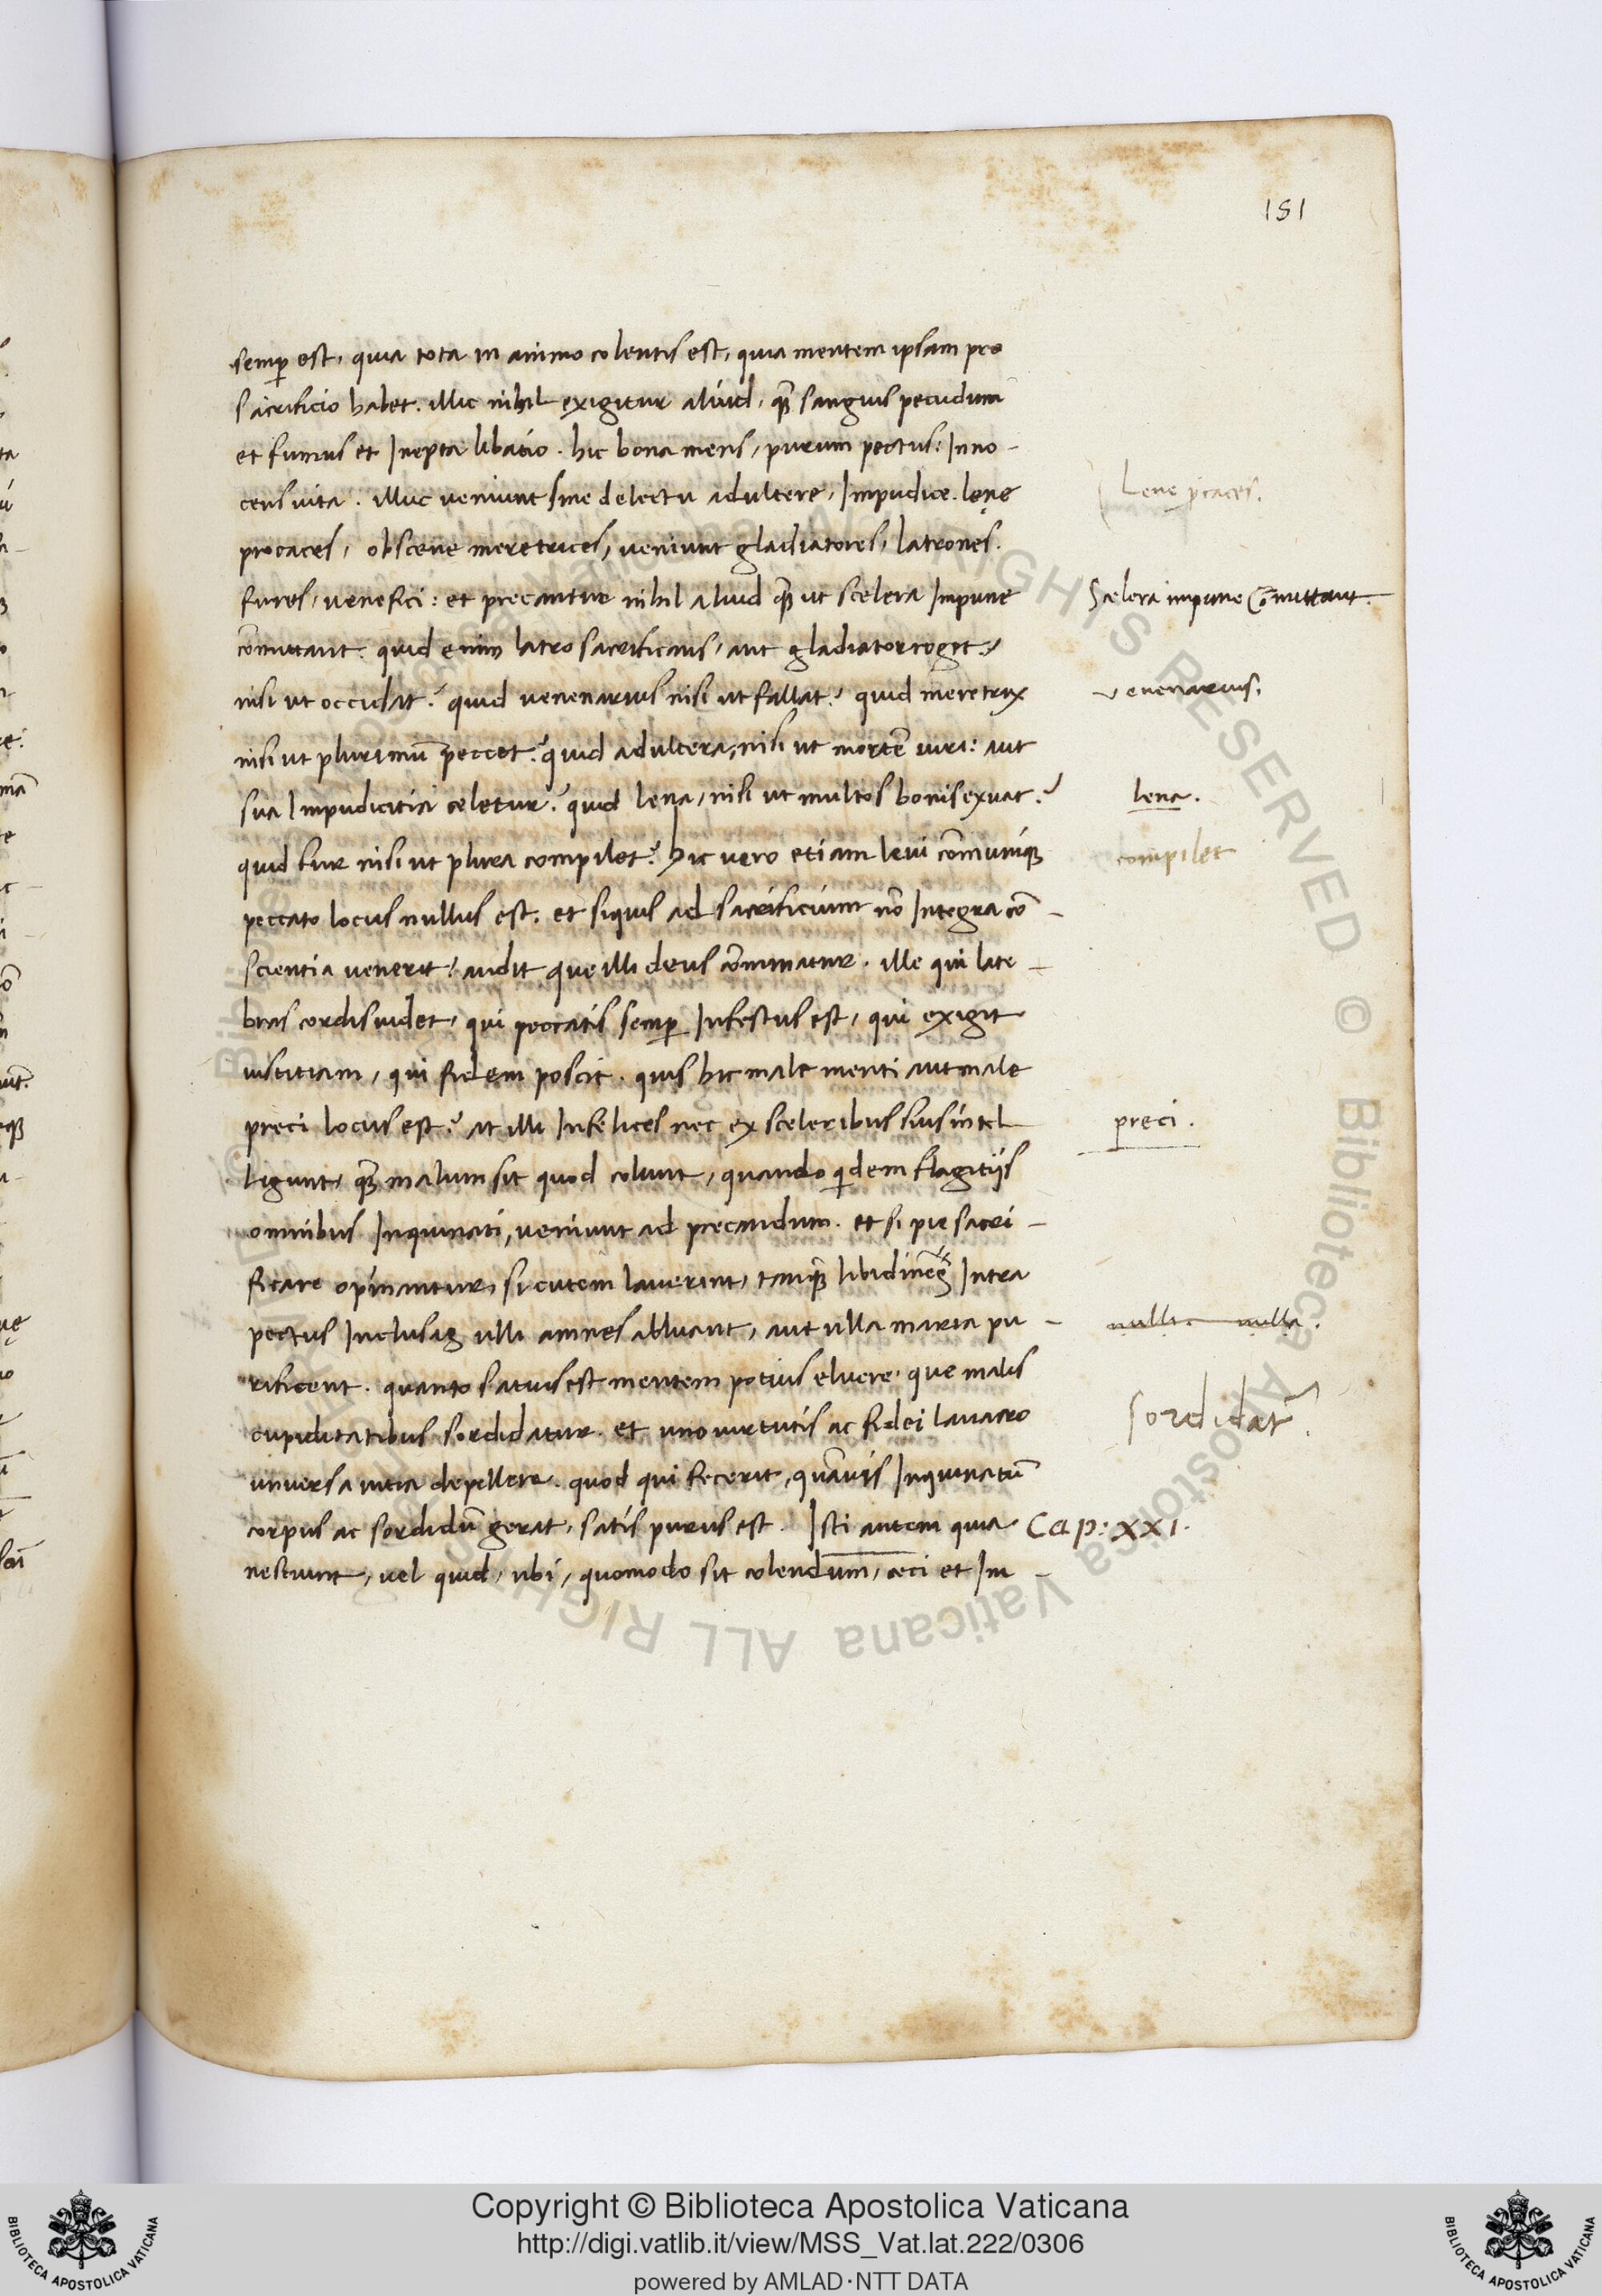 151
semp̱ est, quia tota in animo colentis est, quia mentem ipsam pro
sacrificio habet. illic nihil exigitur aliud, qȝ̃ sanguis pecudum
et fumus et Inepta libatio. hic bona mens, purum pectus: Inno-
cens uita. illuc ueniunt sine delectu adultere, Impudice. lene
procaces, obscene meretrices, ueniunt gladiatores, latrones.
fures, uenefici: et precantur nihil aliud qȝ̃ ut scelera Impune
cõmittant. quid enim latro sacrificans, aut gladiator roget?
nisi ut occidat? quid uenenarius nisi ut fallat? quid meretrix
nisi ut plurimũ peccet? quid adultera, nisi ut mortẽ uiri: aut
sua Impudicitia celetur? quid lena, nisi ut multos bonis exuat?
quid fur nisi ut plura compilet? Hic uero etiam leui cõmuniqȝ
peccato locus nullus est. et siquis ad sacrificium nõ Integra cõ-
scientia uenerit: audit que illi deus cõminatur. ille qui late-
bras cordis uidet, qui peccatis semp̱ Infestus est, qui exigit
iustitiam, qui fidem poscit. quis hic male menti aut male
preci locus est? at illi Infelices nec ex sceleribus suis intel
ligunt, qȝ̃ malum sit quod colunt, quando qͥdem flagitijs
omnibus Inquinati, ueniunt ad precandum. et si pie sacri-
ficare opinantur, si cutem lauerint, tanqȝ̃ libidines Intra
pectus Inclusas ulli amnes abluant, aut ulla maria pu-
rificent. quanto satius est mentem potius eluere, que malis
cupiditatibus sordidatur. et uno uirtutis ac fidei lauacro
uniuersa uitia depellere. quod qui fecerit, quãuis Inquinatũ
corpus ac sordidũ gerat, satis purus est. Isti autem quia
nesciunt, uel quid, ubi, quomodo sit colendum, ceci et Im-
Lene p̱caces.
Scelera impune cõmittant.
uenenarius.
lena.
compilet
preci.
nulli nulla.
sordidat̃.
Cap: xxi.
Copyright © Biblioteca Apostolica Vaticana
http://digi.vatlib.it/view/MSS_Vat.lat.222/0306
powered by AMLAD·NTT DATA
BIBLIOTECA APOSTOLICA VATICANA
BIBLIOTECA APOSTOLICA VATICANA
© Biblioteca Apostolica Vaticana ALL RIGHTS RESERVED © Biblioteca Apostolica Vaticana ALL RIGHTS RESERVED